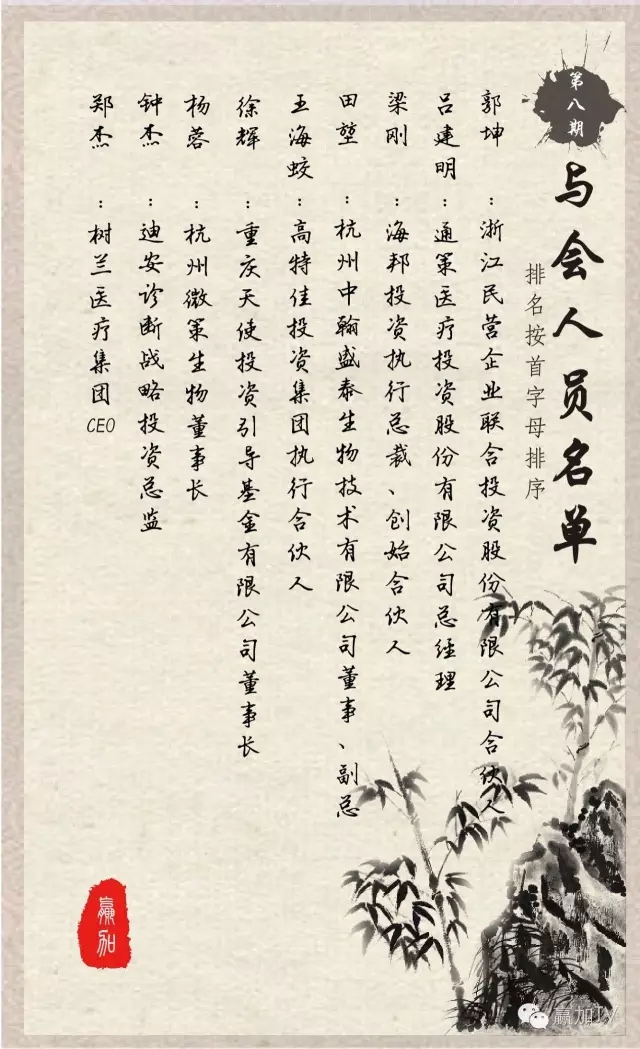 第八期
与会人员名单
排名按首字母排序
郭坤：浙江民营企业联合投资股份有限公司合伙人
吕建明：通策医疗投资股份有限公司总经理
梁刚：海邦投资执行总裁、创始合伙人
田埜：杭州中翰盛泰生物技术有限公司董事、副总
王海蛟：高特佳投资集团执行合伙人
徐辉：重庆天使投资引导基金有限公司董事长
杨蓉：杭州微策生物董事长
钟杰：迪安诊断战略投资总监
郑杰：树兰医疗集团CEO
赢加
赢加TV